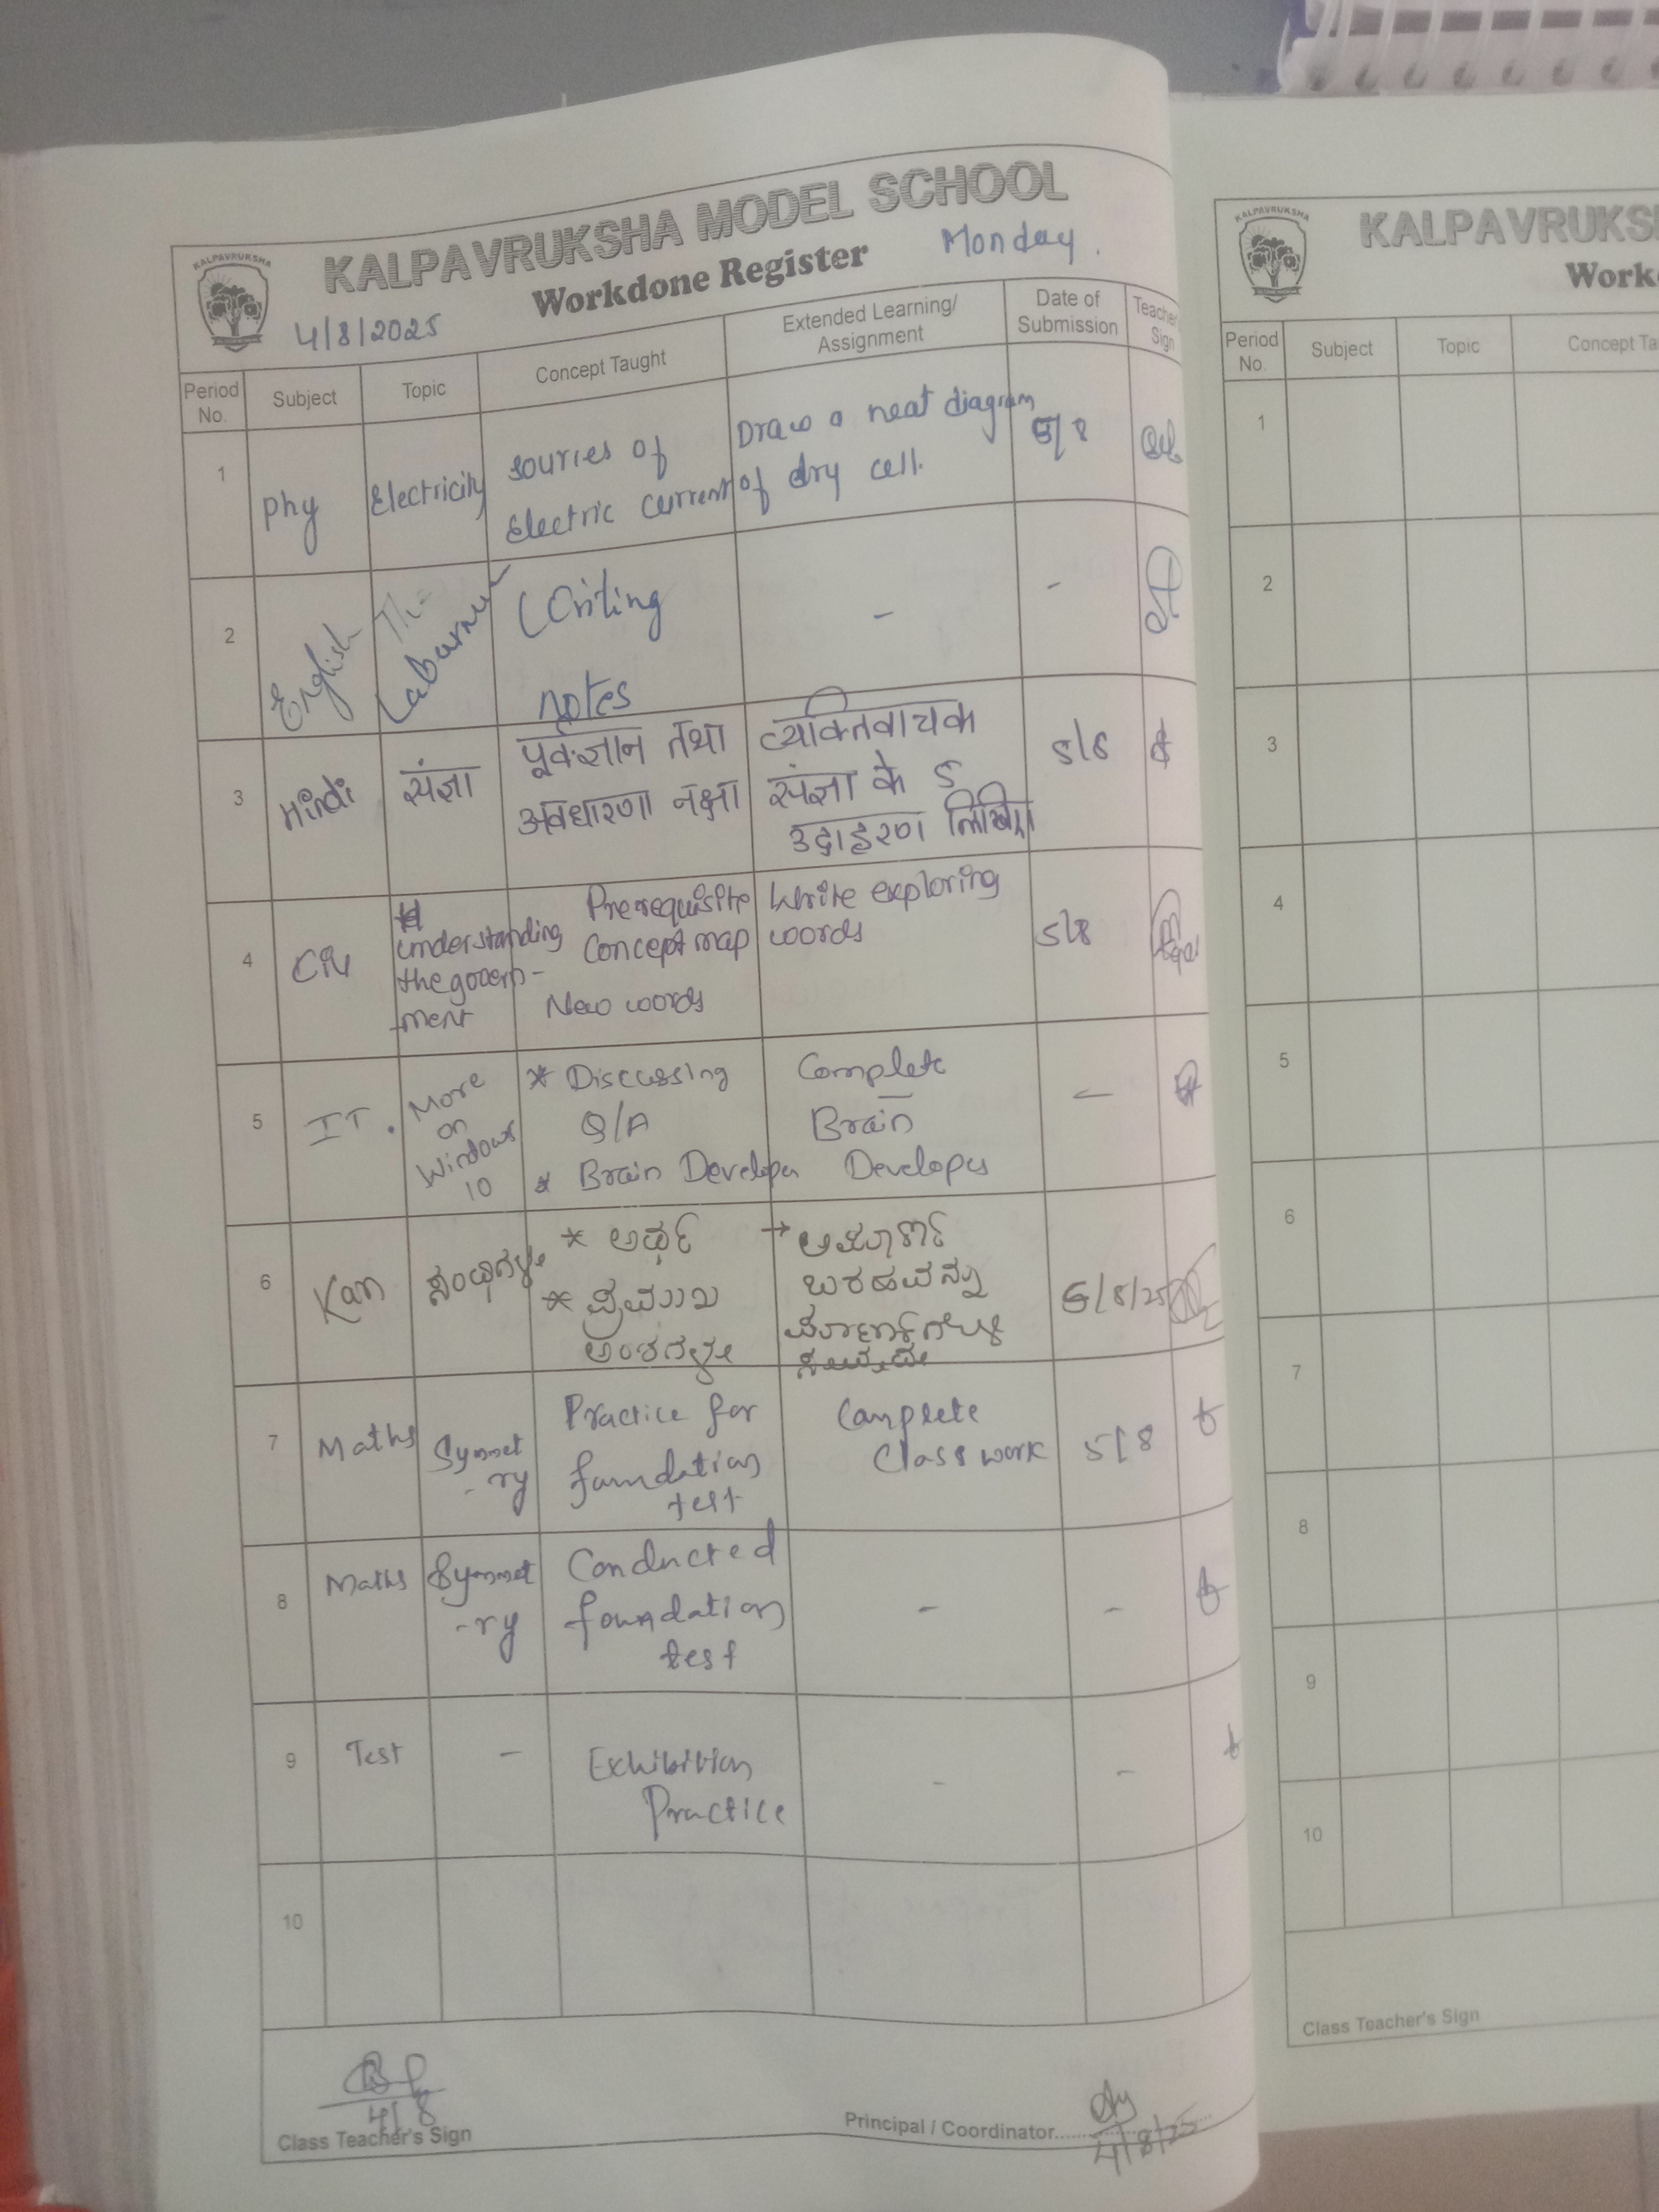 KALPAVRUKSHA
KALPAVRUKSHA MODEL SCHOOL
Workdone Register
Monday.
4/8/2025
Period No.
Subject
Topic
Concept Taught
Extended Learning/ Assignment
Date of Submission
Teacher Sign
1
Phy
Electricity
sources of
Electric current
Draw a neat diagram
of dry cell.
5/8
2
English
The
Laburnum
Writing
notes
-
-
3
Hindi
संज्ञा
पूर्वज्ञान तथा
अवधारणा नक्षा
व्यक्तिवाचक
संज्ञा के 5
उदाहरण लिखिए
5/8
4
Civ
understanding
the govern-
ment
Prerequisite
Concept map
New words
Write exploring
words
5/8
5
IT.
More
on
Windows
10
* Discussing
Q/A
* Brain Developer
Complete
Brain
Developer
-
6
Kan
* ಅರ್ಥ
* ಪ್ರಮುಖ
ಅಂಶಗಳು
→
ಬರಹವನ್ನು
5/8/25
7
Maths
Symmet
-ry
Practice for
foundation
test
Complete
Class work
5/8
8
Maths
Symmet
-ry
Conducted
foundation
test
-
-
9
Test
-
Exhibition
Practice
-
-
10
4/8
Class Teacher's Sign
Principal / Coordinator
4/8/25
KALPAVRUKSHA
KALPAVRUKS
Work
Period No.
Subject
Topic
Concept Ta
1
2
3
4
5
6
7
8
9
10
Class Teacher's Sign